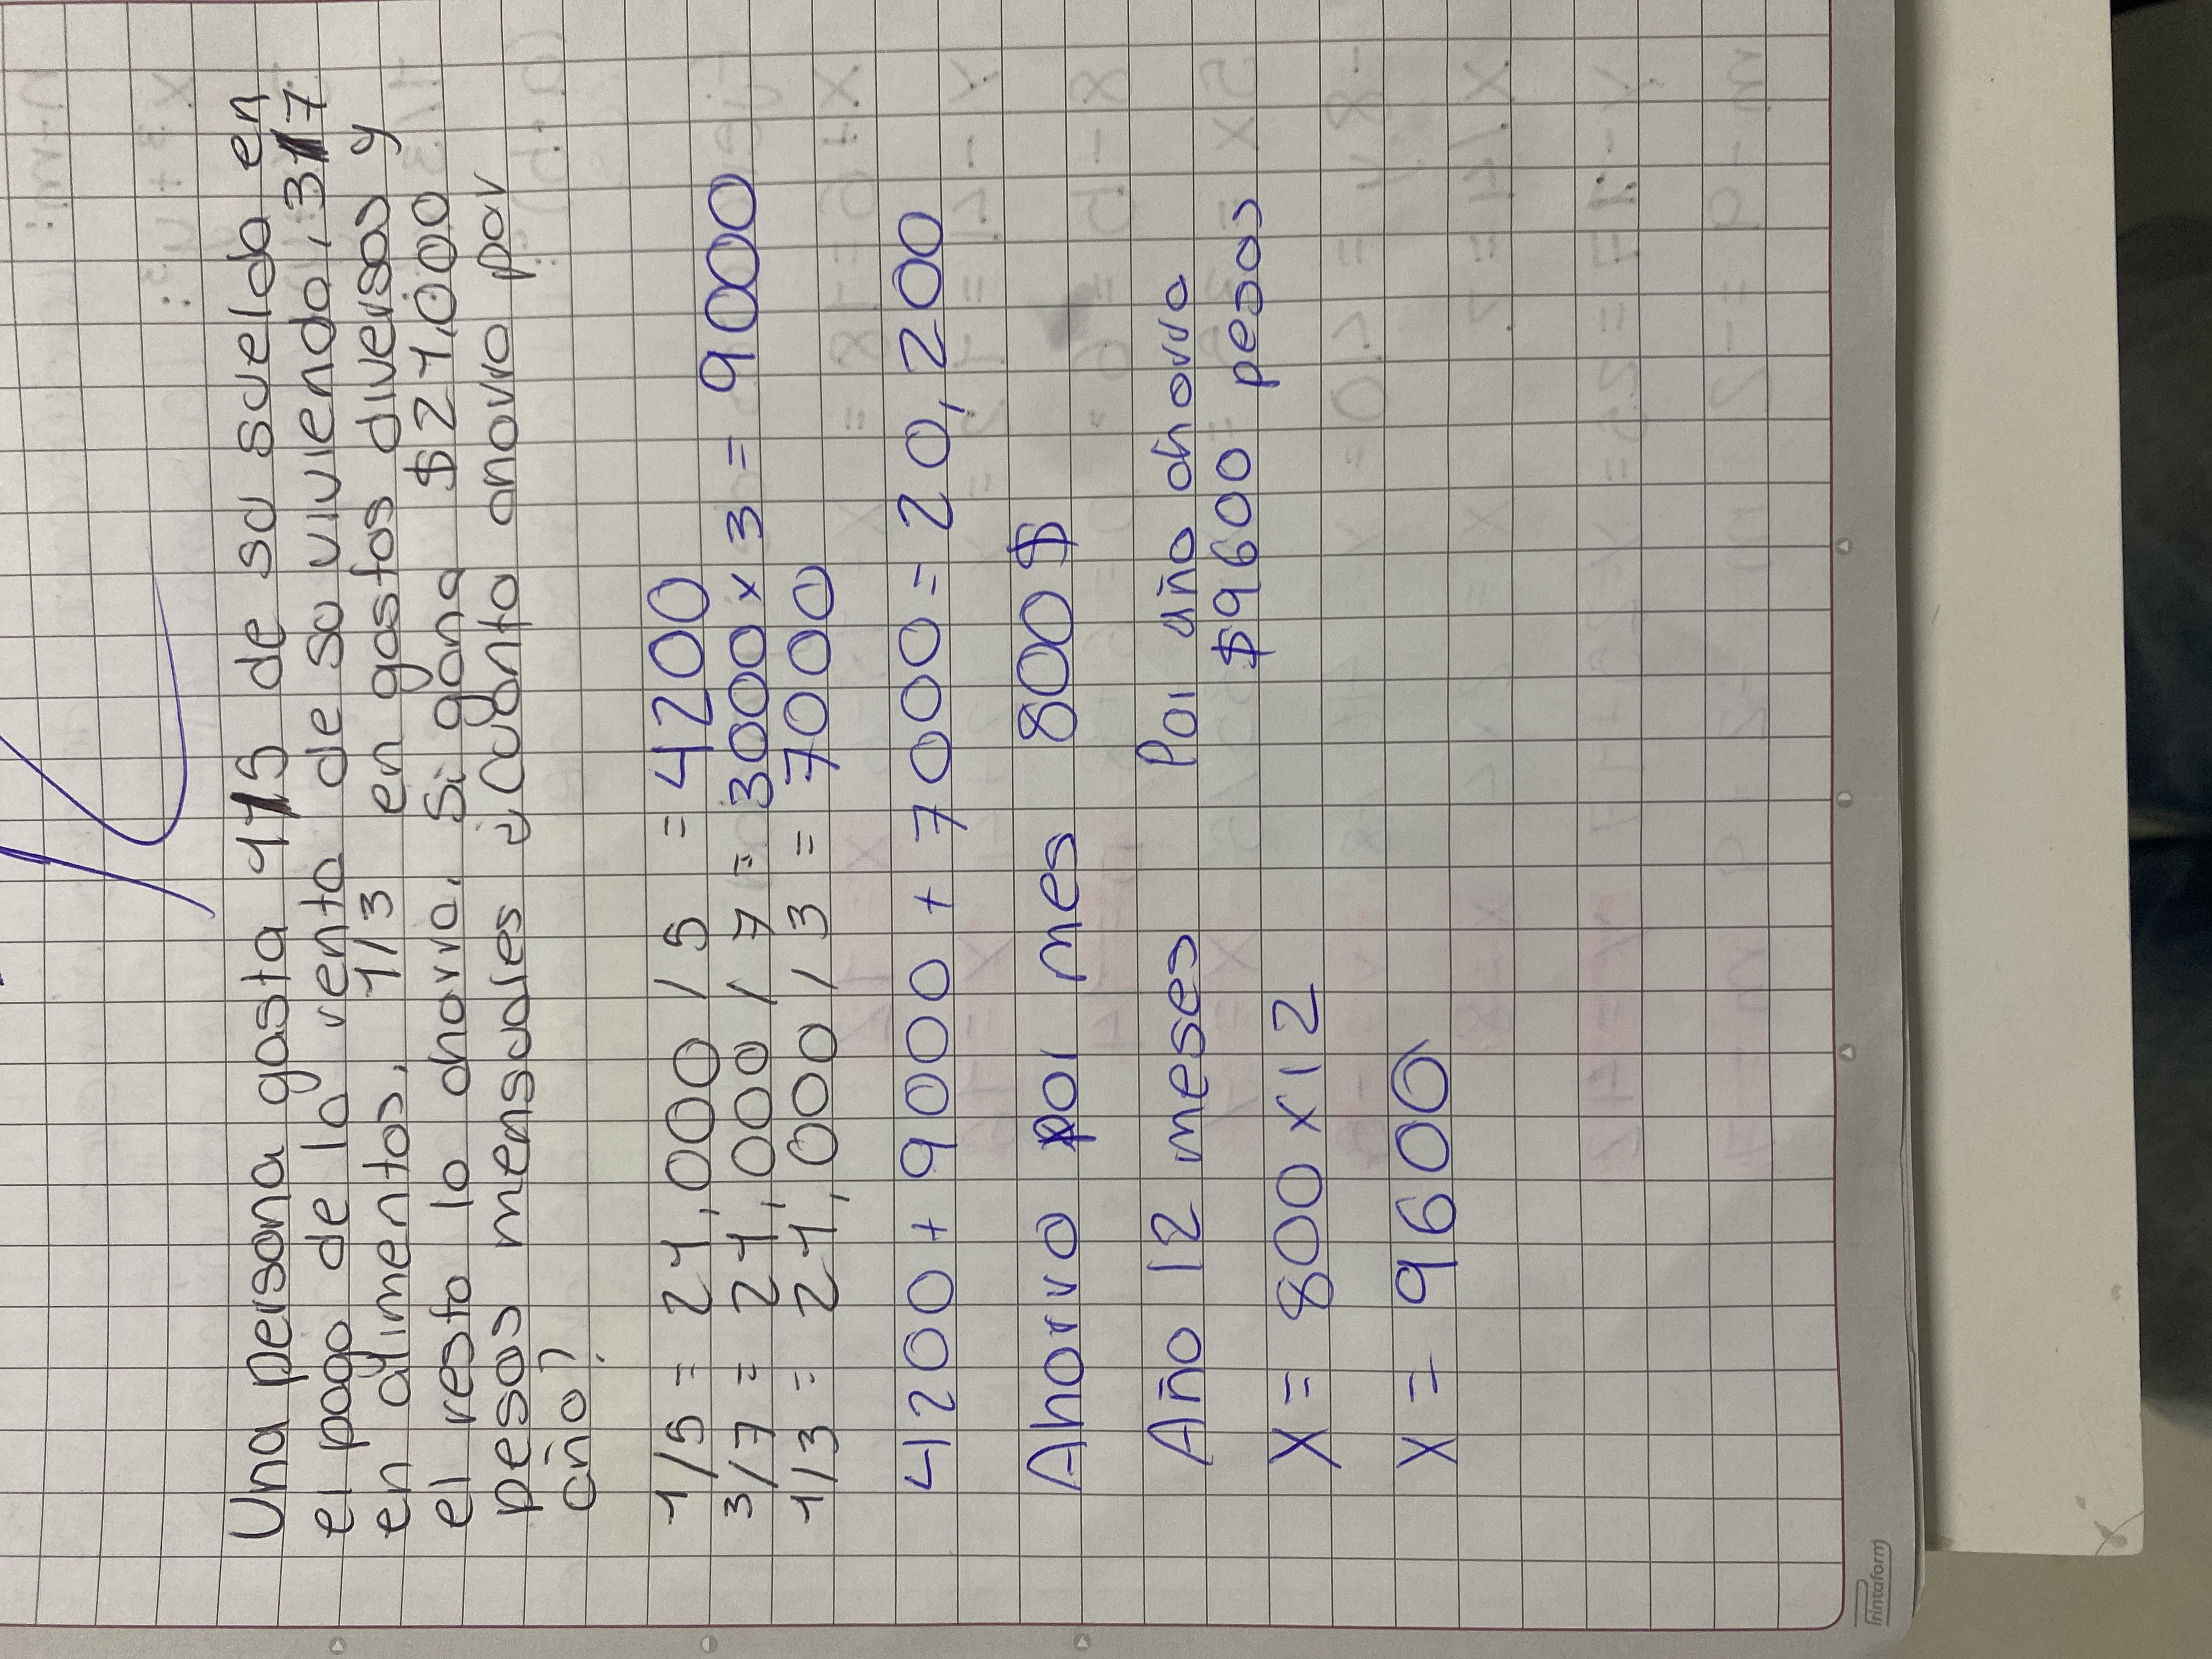 Una persona gasta 1/5 de su sueldo en
el pago de la renta de su vivienda, 3/7
en alimentos, 1/3 en gastos diversos y
el resto lo ahorra. Si gana $21,000
pesos mensuales ¿Cuánto ahorra por
año?
1/5 = 21,000 / 5 = 4200
3/7 = 21,000 / 7 = 3000 x 3 = 9000
1/3 = 21,000 / 3 = 7000
4200 + 9000 + 7000 = 20,200
Ahorro por mes 800 $
Año 12 meses Por año ahorra
$9600 pesos
X = 800 x 12
X = 9600
Printaform